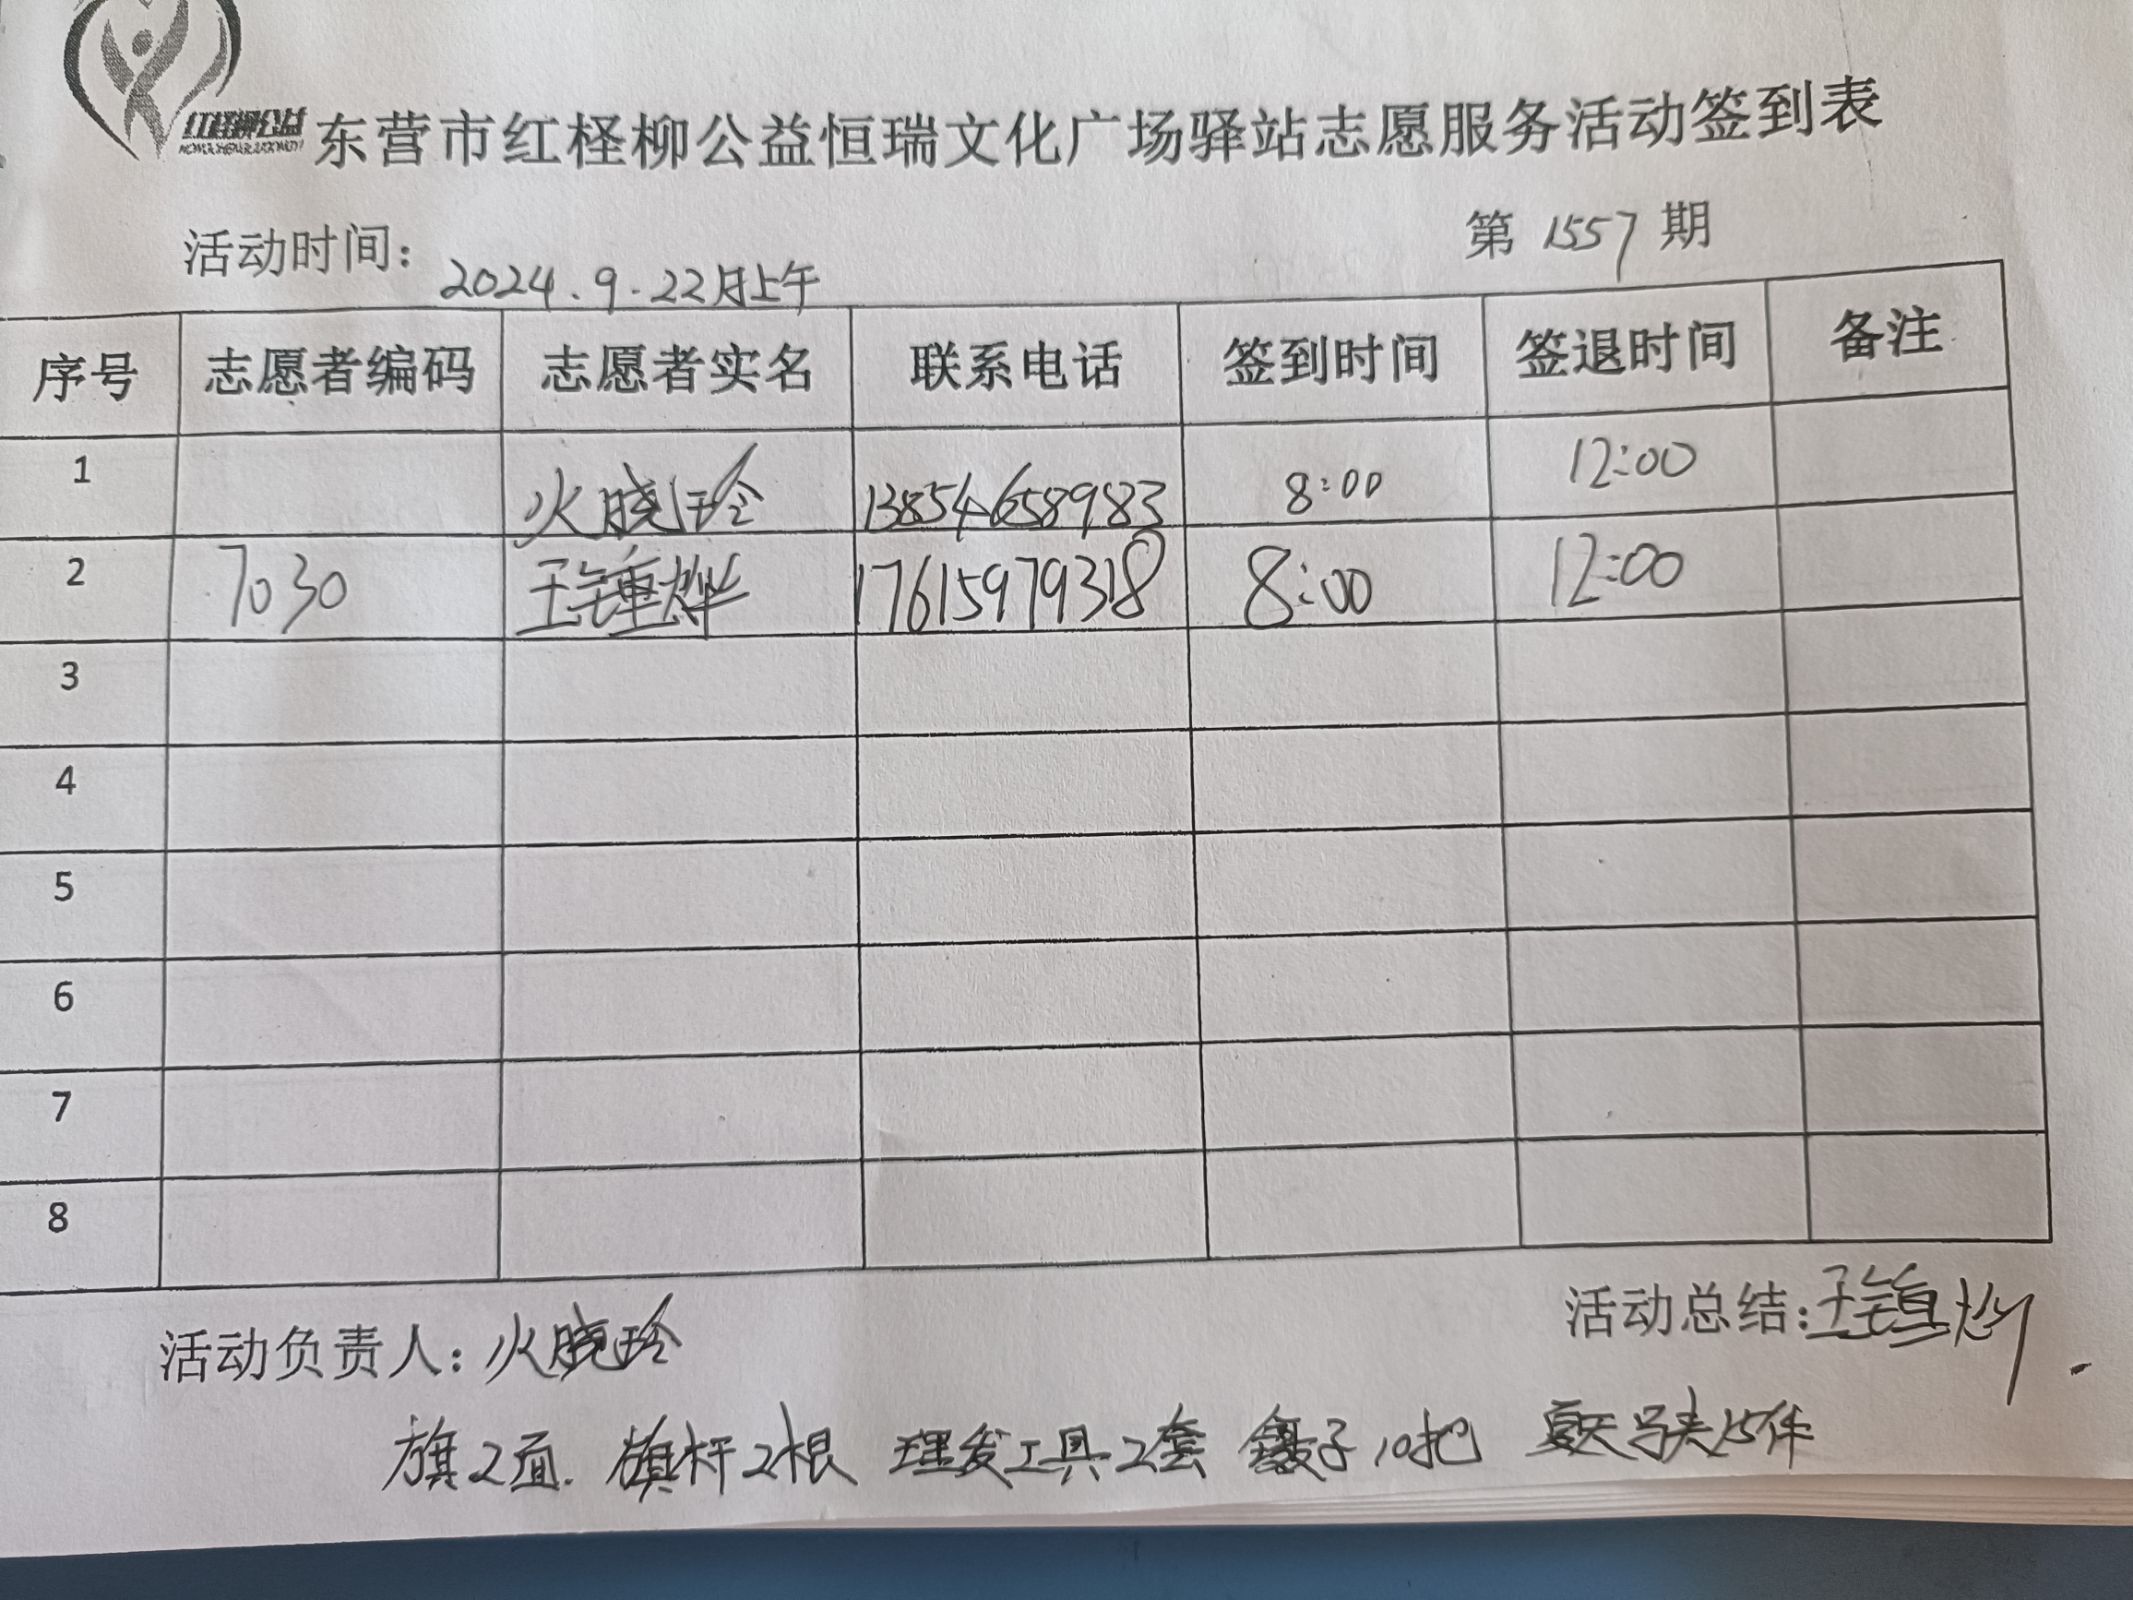 红柽柳公益
东营市红柽柳公益恒瑞文化广场驿站志愿服务活动签到表
活动时间: 2024.9.22日上午 第 1557 期
序号 志愿者编码 志愿者实名 联系电话 签到时间 签退时间 备注
1 火晓玲 13854658983 8:00 12:00
2 7030 王锺烨 17615979318 8:00 12:00
3
4
5
6
7
8
活动负责人: 火晓玲 活动总结:
旗2面. 旗杆2根 理发工具2套 镊子10把 夏天马夹15件